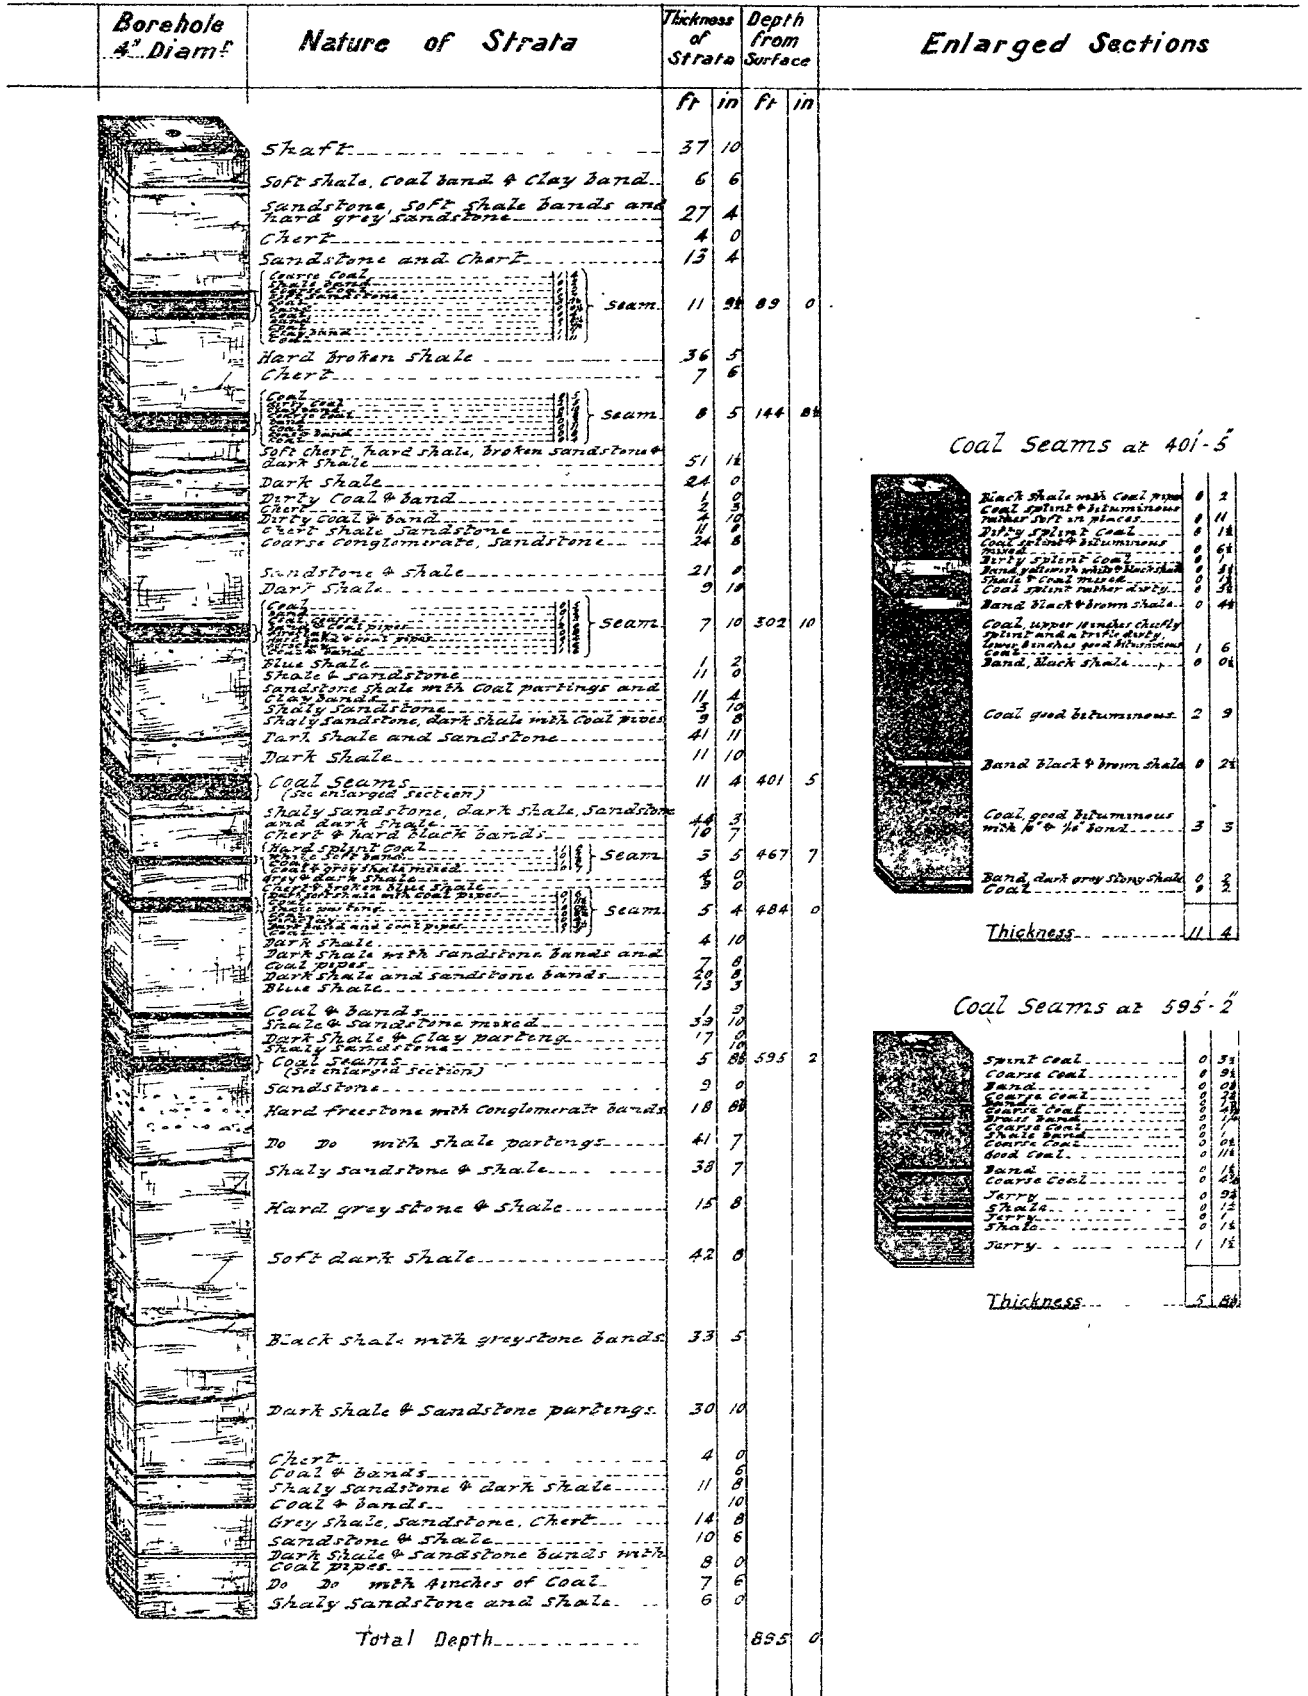 Borehole
4" Diamr
Nature of Strata
Thickness of Strata
Depth from Surface
Enlarged Sections
ft in ft in
Shaft 37 10
Soft shale, Coal band & Clay band 6 6
Sandstone, soft shale bands and
hard grey sandstone 27 4
Chert 4 0
Sandstone and Chert 13 4
Coarse Coal 1 4
Shale band
Coarse Coal
Soft Sandstone
Coal
Clay band
Seam 11 9½ 89 0
Hard broken shale 36 5
Chert 7 6
Coal
Dirty Coal
Clay band
Coarse Coal
Band
Coal
Seam 8 5 144 8½
Soft chert, hard shale, broken sandstone &
dark shale 51 1½
Dark shale 24 0
Dirty Coal & band 1 0
Chert 2 3
Dirty Coal & band 4 10
Chert shale sandstone 11 8
Coarse Conglomerate, Sandstone 24 8
Sandstone & shale 21 8
Dark Shale 9 10
Coal
Band
Band & Coal pipes
Coal & band
Seam 7 10 302 10
Blue shale 1 2
Shale & sandstone 11 0
Sandstone shale with Coal partings and
Clay bands 11 4
Shaly Sandstone 3 10
Shaly sandstone, dark shale with Coal pipes 9 8
Dark shale and Sandstone 41 11
Dark shale 11 10
Coal Seams 11 4 401 5
(See enlarged section)
Shaly sandstone, dark shale, Sandstone
and dark shale 44 3
Chert & hard black bands 10 7
Hard splint Coal
White soft band
Coal
Coal & grey shale mixed
Seam 3 5 467 7
Grey & dark shale 4 0
Chert & broken blue shale
Dark soft shale with Coal pipes
Coal
Shale parting
Coal
Dark band and Coal pipes
Coal
Seam 5 4 484 0
Dark shale 4 10
Dark shale with sandstone bands and
Coal pipes 7 8
Dark shale and sandstone bands 20 8
Blue shale 13 3
Coal & bands 1 9
Shale & Sandstone mixed 39 10
Dark Shale & Clay parting 17 0
Shaly Sandstone 10
Coal Seams 5 8½ 595 2
(See enlarged section)
Sandstone 9 0
Hard freestone with Conglomerate bands 18 8½
Do Do with shale partings 41 7
Shaly sandstone & shale 38 7
Hard grey stone & shale 15 8
Soft dark shale 42 8
Black shale with greystone bands 33 5
Dark shale & Sandstone partings 30 10
Chert 4 0
Coal & bands 6
Shaly sandstone & dark shale 11 8
Coal & bands 10
Grey shale, Sandstone, Chert 14 8
Sandstone & shale 10 6
Dark shale & sandstone bands with
Coal pipes 8 0
Do Do with 4 inches of Coal 7 6
Shaly sandstone and shale 6 0
Total Depth 895 0
Coal Seams at 401'-5"
Black shale with Coal pipes 0 2
Coal splint & bituminous
rather soft in places 0 11
Dirty splint Coal 0 1½
Coal splint & bituminous
mixed 0 6½
Dirty splint Coal 0 1
Band yellowish white & black shale 0 3½
Shale & Coal mixed 0 1½
Coal splint rather dirty 0 3½
Band black & brown shale 0 4½
Coal, upper 10 inches chiefly
splint and a trifle dirty,
lower 8 inches good bituminous
Coal 1 6
Band, black shale 0 0½
Coal good bituminous 2 9
Band black & brown shale 0 2½
Coal, good bituminous
with ⅛" & 1/16" band 3 3
Band, dark grey stony shale 0 2
Coal 0 2
Thickness 11 4
Coal Seams at 595'-2"
Splint Coal 0 3½
Coarse Coal 0 9½
Band 0 0½
Coarse Coal 0 2½
Band
Coarse Coal
Brass band
Coarse Coal 0 1
Shale band 0 1
Coarse Coal 0 0½
Good Coal 0 11½
Band 0 1½
Coarse Coal
Jerry 0 9½
Shale 0 1½
Jerry 0 1
Shale 0 1½
Jerry 1 1½
Thickness 5 8½